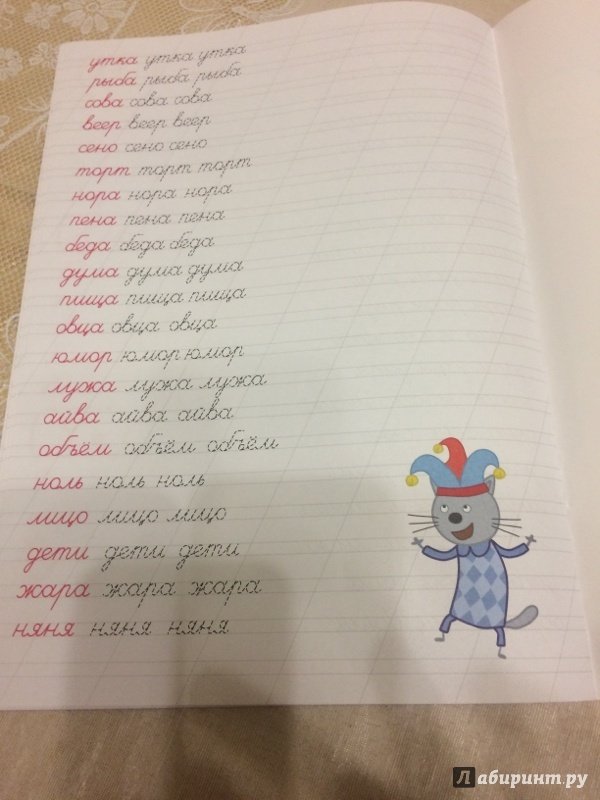 утка утка утка
рыба рыба рыба
сова сова сова
веер веер веер
сено сено сено
торт торт торт
нора нора нора
пена пена пена
беда беда беда
дума дума дума
пища пища пища
овца овца овца
юмор юмор юмор
лужа лужа лужа
айва айва айва
объём объём объём
ноль ноль ноль
лицо лицо лицо
дети дети дети
жара жара жара
няня няня няня
Л абиринт.ру